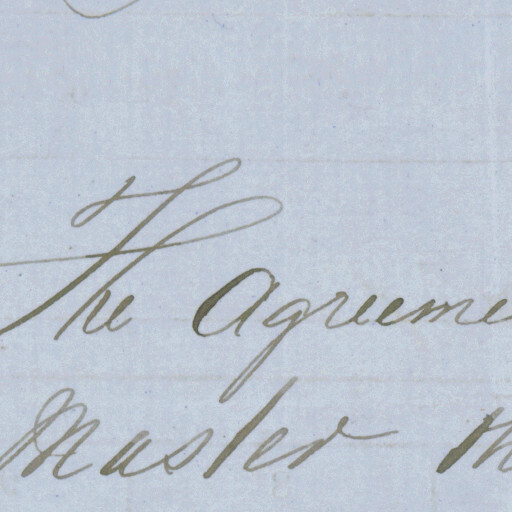 The Agreeme
Master